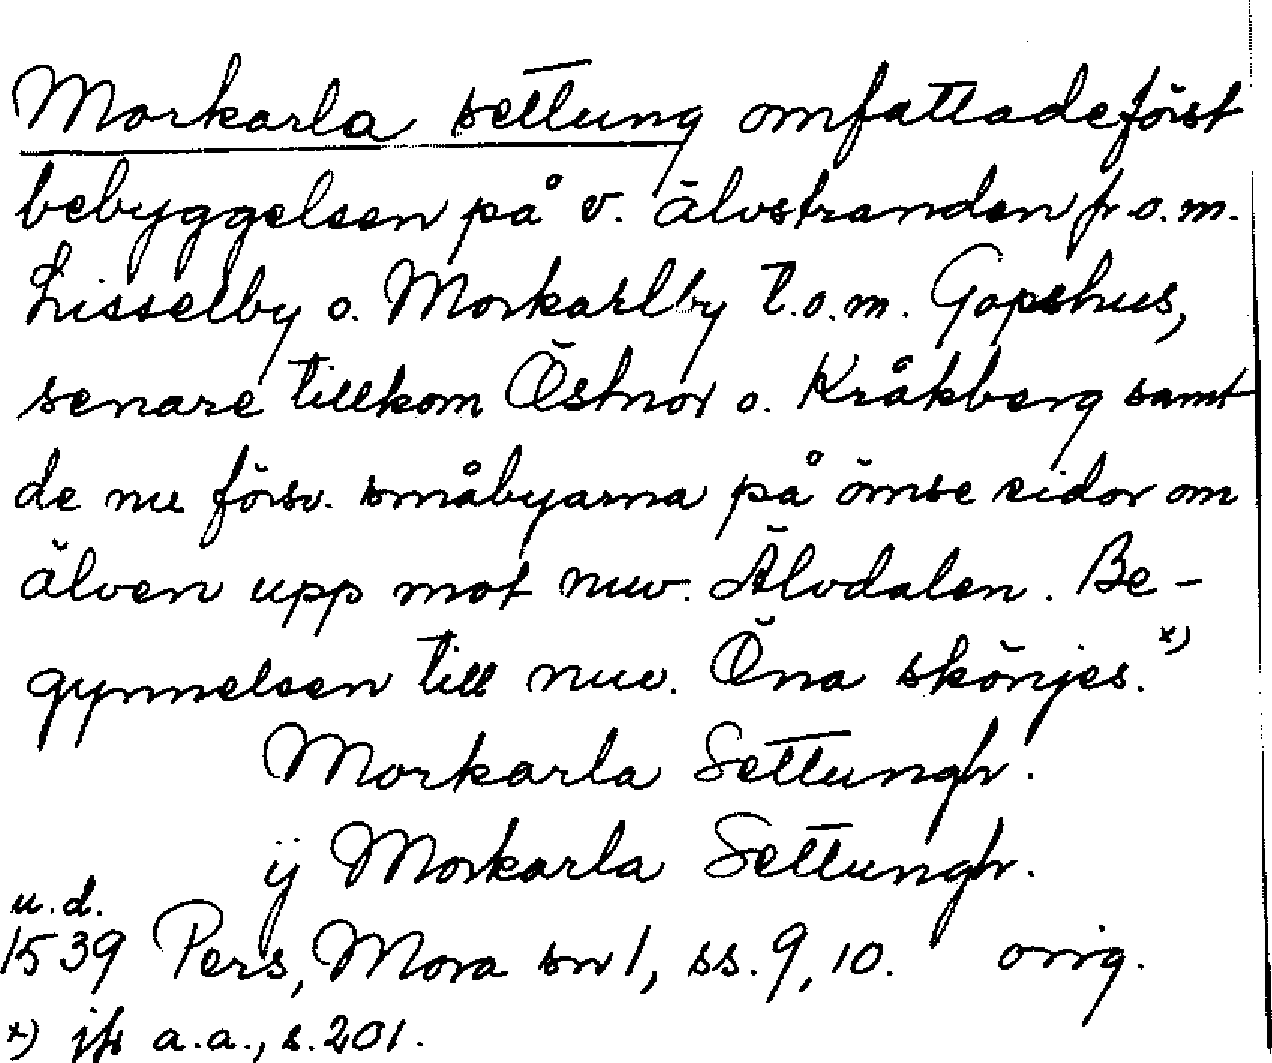 Morkarla settung omfattade först
bebyggelsen på v. älvstranden fr.o.m.
Lisselby o. Morkarlby t.o.m. Gopshus,
senare tillkom Östnor o. Kråkberg samt
de nu försv. småbyarna på ömse sidor om
älven upp mot nuv. Älvdalen. Be-
gynnelsen till nuv. Öna skönjes.x)
Morkarla Settungh.
ij Morkarla Settungh.
u.d.
1539 Pers, Mora sn 1, ss. 9, 10. orig.
x) jfr a.a., s. 201.